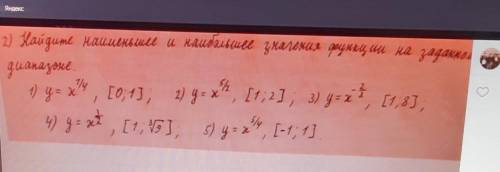 Яндекс
2) Найдите наименьшее и наибольшее значения функции на заданном
диапазоне.
1) y = x^{7/4}, [0;1]; 2) y = x^{5/2}, [1;2]; 3) y = x^{-2/3}, [1,8];
4) y = x^{1/2}, [1; ∛9], 5) y = x^{5/4}, [-1;1].